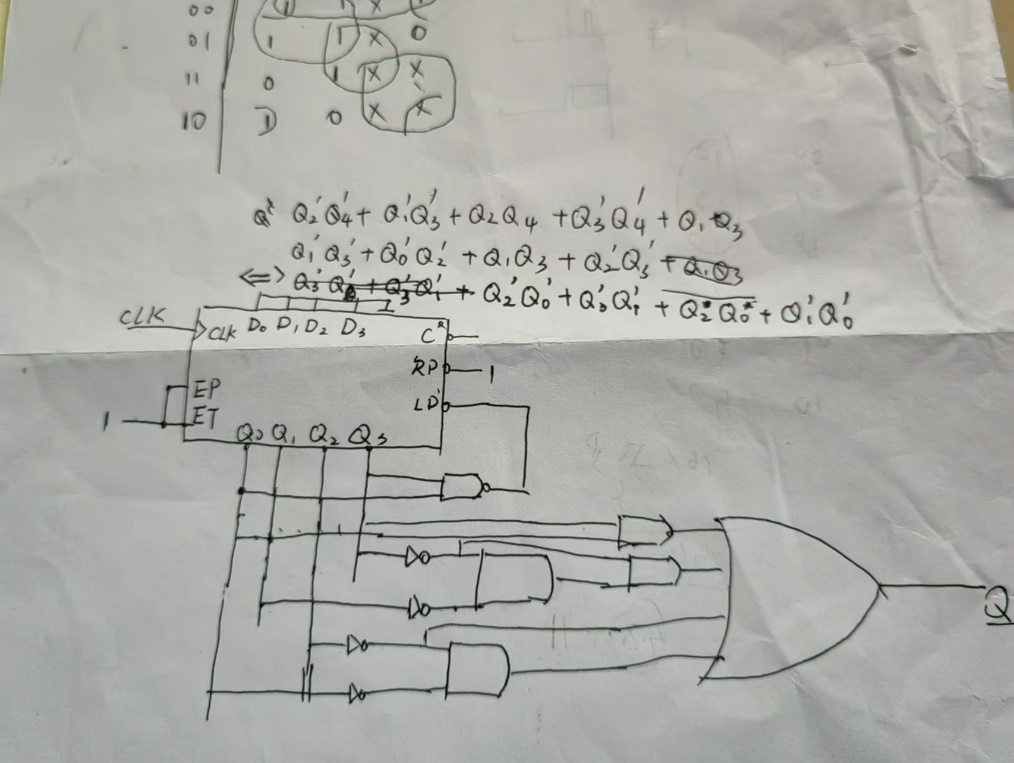 00 1 1 X
01 1 1 X 0
11 0 1 X X
10 D 0 X X
Q₂'Q₄'+ Q₁'Q₃' + Q₂Q₄ + Q₃'Q₄' + Q₁Q₃
Q₁'Q₃' + Q₀'Q₂' + Q₁Q₃ + Q₂'Q₃' + Q₁Q₃
<=> Q₃'Q₂' + Q₃'Q₁' + Q₂'Q₀' + Q₃'Q₁' + Q₂Q₀ + Q₁'Q₀'
CLK
CLK D₀ D₁ D₂ D₃ C
RD 1
EP
LD'
1 ET
Q₀ Q₁ Q₂ Q₃
Q